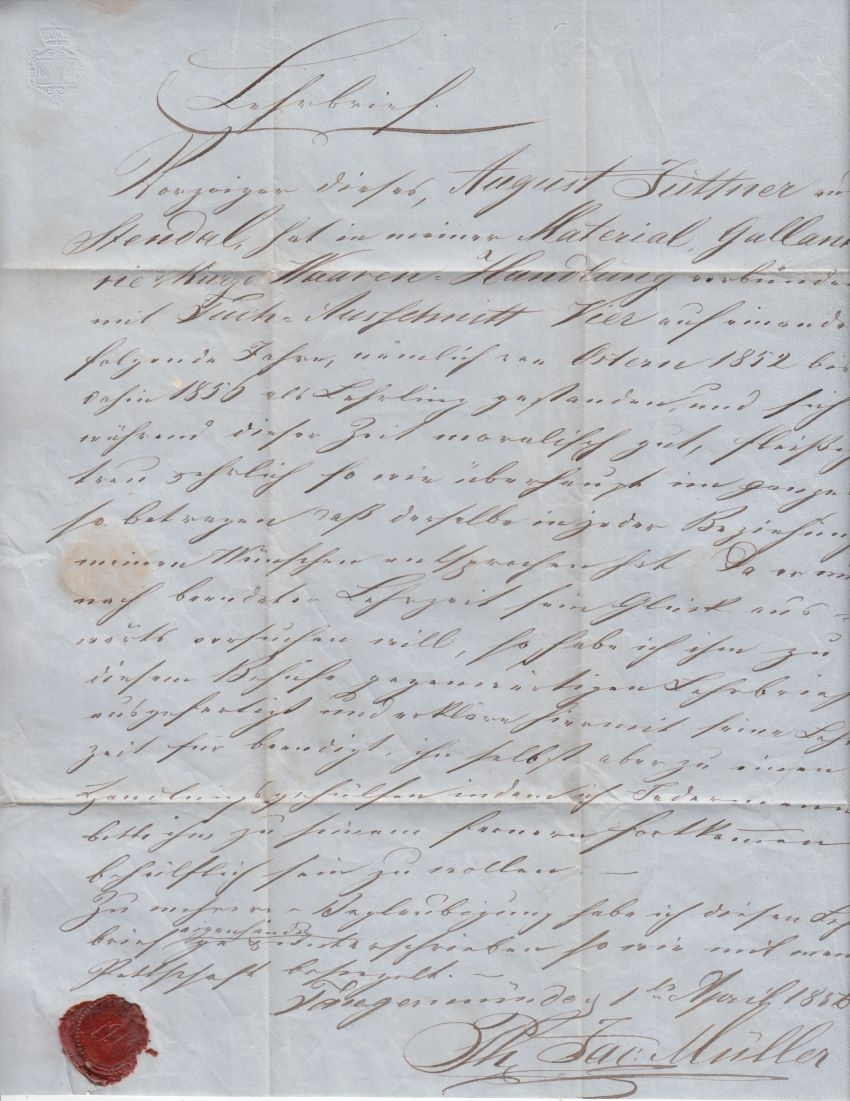 Lehrbrief.
Vorzeiger dieses, August Jüttner au
Stendal, hat in meiner Material, Gallant
rie & Kurze Waaren-Handlung verbunden
mit Tuch-Ausschnitt Vier auf einande
folgende Jahre, nämlich von Ostern 1852 bis
dahin 1856 als Lehrling gestanden, und sich
während dieser Zeit moralisch gut, fleißig
treu & ehrlich so wie überhaupt im ganze
so betragen daß derselbe in jeder Beziehung
meinen Wünschen entsprochen hat. Da er nu
nach beendeter Lehrzeit sein Glück aus-
wärts versuchen will, so habe ich ihm zu
diesem Behufe gegenwärtigen Lehrbrief
ausgefertigt und erkläre hiermit seine Leh
zeit für beendigt, ihn selbst aber zu einen
Handlungsgehülfen indem ich Jedermann
bitte ihm zu seinem fernern Fortkommen
behülflich sein zu wollen. —
Zu mehrerer Beglaubigung habe ich diesen Leh
brief eigenhändig unterschrieben so wie mit mein
Pettschaft besiegelt. —
Tangermünde, 1ten April 1856
Jac. Müller